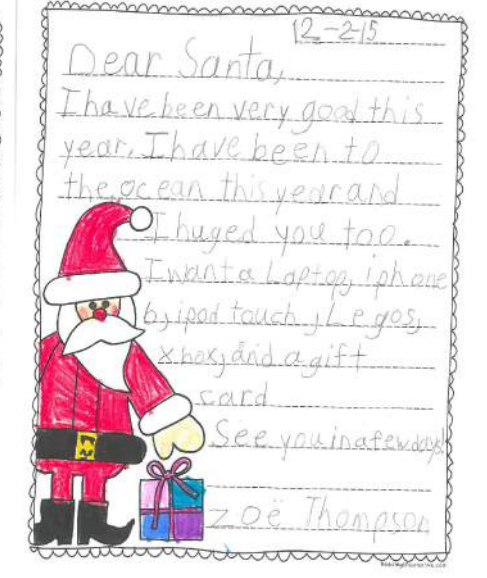 12-2-15
Dear Santa,
I have been very good this
year. I have been to
the ocean this year and
I huged you too.
I want a Laptop, iphone
6, ipod touch, Legos,
xbox, and a gift
card
See you in a few days!
Zoë Thompson